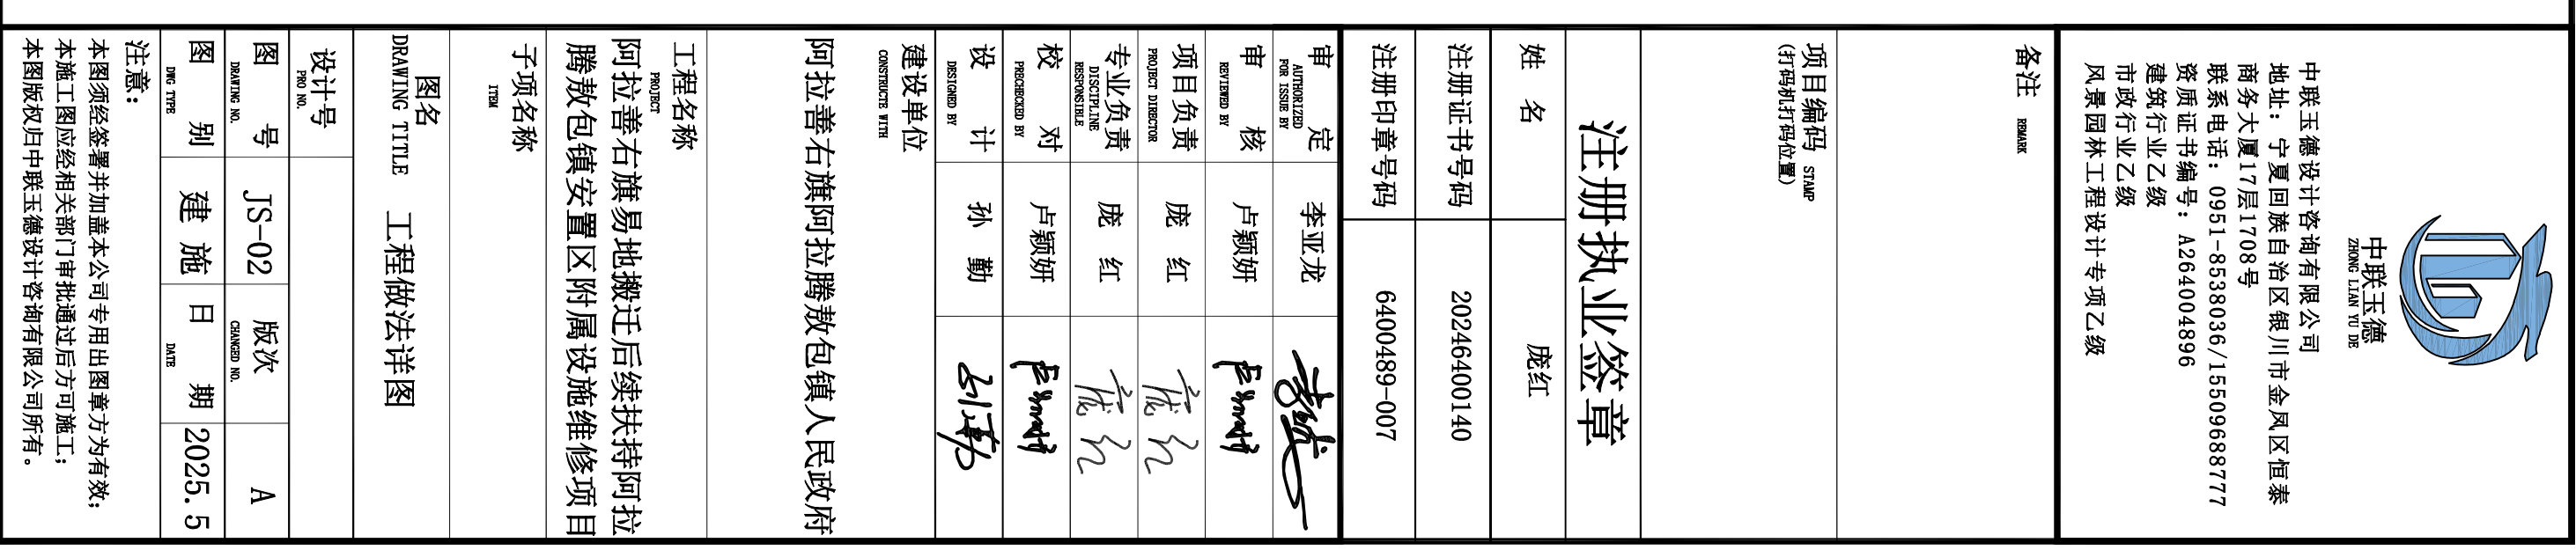 中联玉德
ZHONG LIAN YU DE
中联玉德设计咨询有限公司
地址：宁夏回族自治区银川市金凤区恒泰
商务大厦17层1708号
联系电话：0951-8538036/15509688777
资质证书编号：A264004896
建筑行业乙级
市政行业乙级
风景园林工程设计专项乙级
备注 REMARK
项目编码 STAMP
(打码机打码位置)
注册执业签章
姓 名 庞红
注册证书号码 20246400140
注册印章号码 6400489-007
审 定 李亚龙
AUTHORIZED
FOR ISSUE BY
审 核 卢颖妍
REVIEWED BY
项目负责 庞 红
PROJECT DIRECTOR
专业负责 庞 红
DISCIPLINE
RESPONSIBLE
校 对 卢颖妍
PRECHECKED BY
设 计 孙 勤
DESIGNED BY
建设单位
CONSTRUCTE WITH
阿拉善右旗阿拉腾敖包镇人民政府
工程名称
PROJECT
阿拉善右旗易地搬迁后续扶持阿拉
腾敖包镇安置区附属设施维修项目
子项名称
ITEM
图名
DRAWING TITLE 工程做法详图
设计号
PRO NO.
图 号 JS-02 版次 A
DRAWING NO. CHANGED NO.
图 别 建 施 日 期 2025.5
DWG TYPE DATE
注意：
本图须经签署并加盖本公司专用出图章方为有效；
本施工图应经相关部门审批通过后方可施工；
本图版权归中联玉德设计咨询有限公司所有。